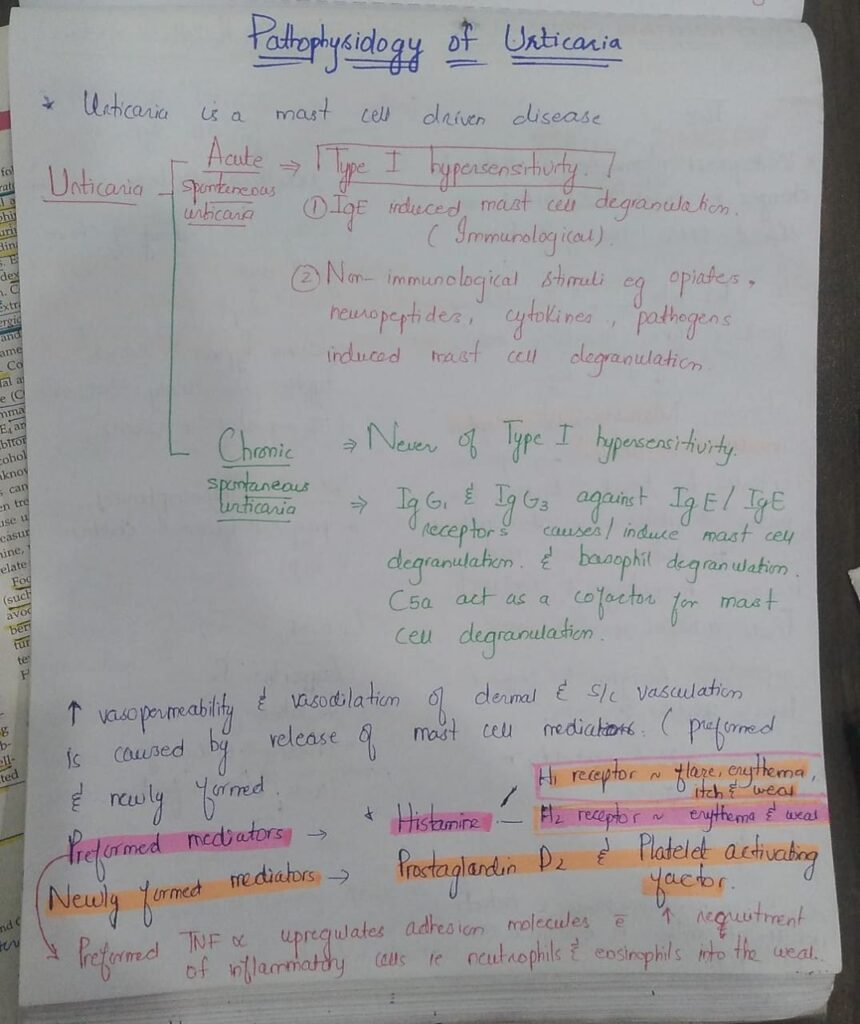 Pathophysiology of Urticaria
* Urticaria is a mast cell driven disease
Urticaria
Acute spontaneous urticaria ⇒ Type I hypersensitivity.
① IgE induced mast cell degranulation.
(Immunological).
② Non-immunological stimuli eg opiates,
neuropeptides, cytokines, pathogens
induced mast cell degranulation.
Chronic spontaneous urticaria ⇒ Never of Type I hypersensitivity.
⇒ IgG₁ & IgG₃ against IgE/IgE
receptors causes/induce mast cell
degranulation. & basophil degranulation.
C5a act as a cofactor for mast
cell degranulation.
↑ vasopermeability & vasodilation of dermal & s/c vasculation
is caused by release of mast cell mediators. (preformed
& newly formed.
H₁ receptor ~ flare, erythema,
itch & weal
Preformed mediators → * Histamine — H₂ receptor ~ erythema & weal
Newly formed mediators → Prostaglandin D₂ & Platelet activating
factor.
Preformed TNF α upregulates adhesion molecules c̄ ↑ requitment
of inflammatory cells ie neutrophils & eosinophils into the weal.